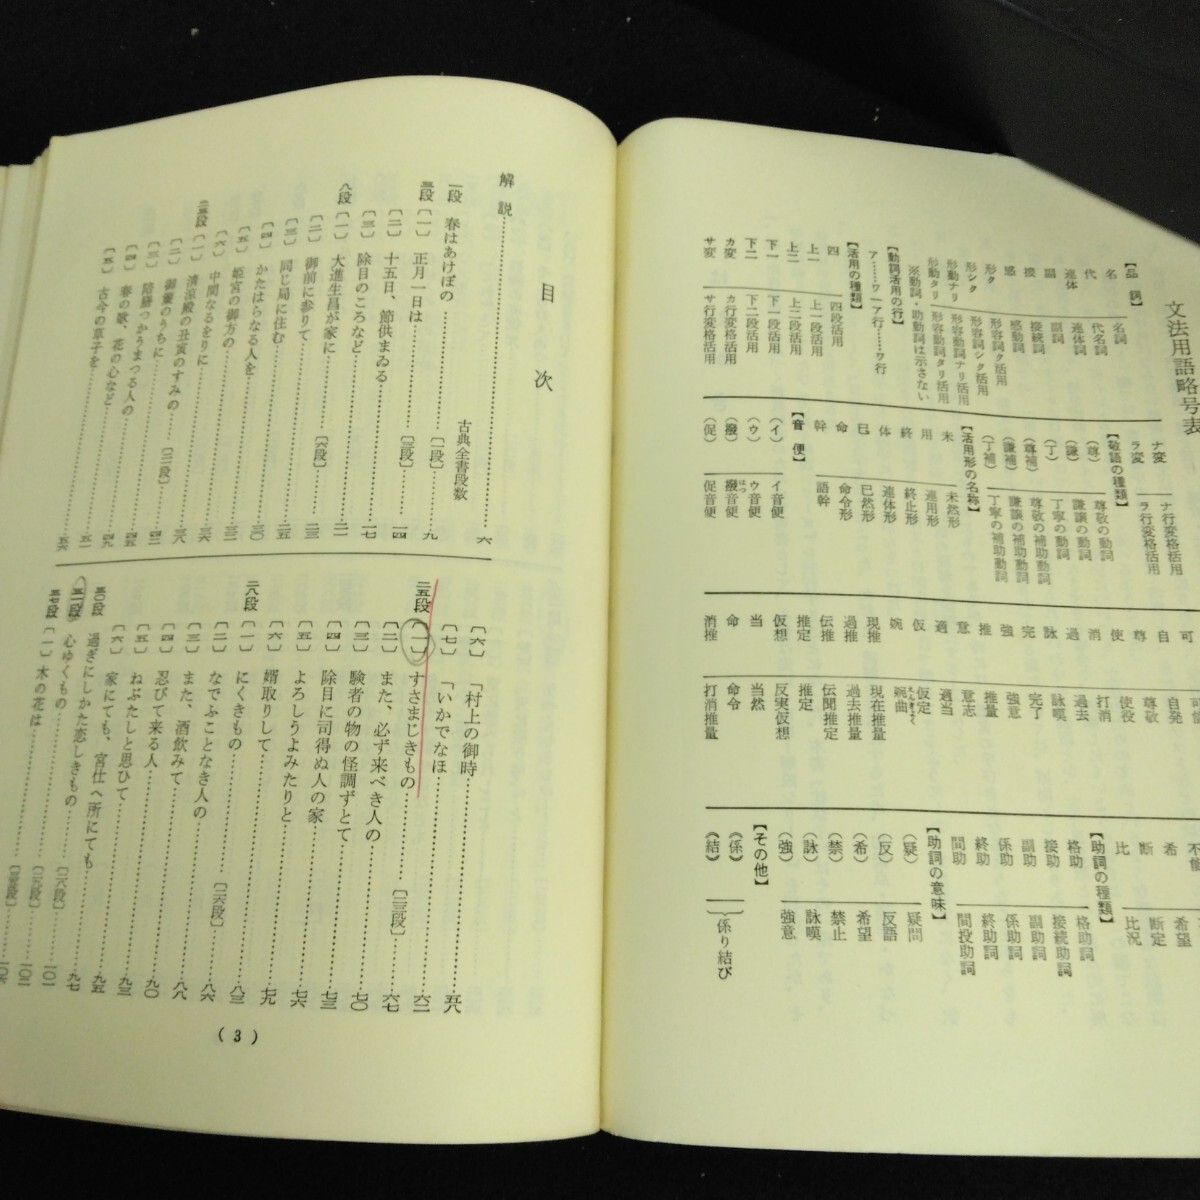 文法用語略号表
【品詞】
名 名詞
代 代名詞
連体 連体詞
副 副詞
接 接続詞
感 感動詞
形ク 形容詞ク活用
形シク 形容詞シク活用
形動ナリ 形容動詞ナリ活用
形動タリ 形容動詞タリ活用
※動詞・助動詞は示さない
【動詞活用の行】
ア……ワ ア行……ワ行
【活用の種類】
四 四段活用
上一 上一段活用
上二 上二段活用
下一 下一段活用
下二 下二段活用
カ変 カ行変格活用
サ変 サ行変格活用
ナ変 ナ行変格活用
ラ変 ラ行変格活用
【敬語の種類】
(尊) 尊敬の動詞
(謙) 謙譲の動詞
(丁) 丁寧の動詞
(尊補) 尊敬の補助動詞
(謙補) 謙譲の補助動詞
(丁補) 丁寧の補助動詞
【活用形の名称】
未 未然形
用 連用形
終 終止形
体 連体形
已 已然形
命 命令形
幹 語幹
【音便】
(イ) イ音便
(ウ) ウ音便
(撥) 撥音便
(促) 促音便
可
自 自発
尊 尊敬
使 使役
消 打消
過 過去
詠 詠嘆
完 完了
強 強意
推 推量
意 意志
適 適当
仮 仮定
婉 婉曲
現推 現在推量
過推 過去推量
伝推 伝聞推定
推定 推定
仮想 反実仮想
当 当然
命 命令
消推 打消推量
希 希望
断 断定
比 比況
【助詞の種類】
格助 格助詞
接助 接続助詞
副助 副助詞
係助 係助詞
終助 終助詞
間助 間投助詞
【助詞の意味】
(疑) 疑問
(反) 反語
(希) 希望
(禁) 禁止
(詠) 詠嘆
(強) 強意
【その他】
(係)
(結) 係り結び
目次
古典全書段数
解説 六
一段 春はあけぼの 〔一段〕 九
三段 〔一〕 正月一日は 〔三段〕
〔二〕 十五日、節供まゐる 一四
〔三〕 除目のころなど 一七
八段 〔一〕 大進生昌が家に 〔六段〕 二一
〔二〕 御前に参りて 二三
〔三〕 同じ局に住む 二五
〔四〕 かたはらなる人を 三〇
〔五〕 姫宮の御方の 三二
〔六〕 中間なるをりに 三六
二三段 〔一〕 清涼殿の丑寅のすみの 〔二段〕 三八
〔二〕 御簾のうちに 四二
〔三〕 陪膳つかうまつる人の 四五
〔四〕 春の歌、花の心など 四九
〔五〕 古今の草子を 五二
五六
〔六〕 「村上の御時 五八
〔七〕 「いかでなほ
二五段 〔一〕 すさまじきもの 〔二三段〕 六二
〔二〕 また、必ず来べき人の 六七
〔三〕 験者の物の怪調ずとて 七〇
〔四〕 除目に司得ぬ人の家 七三
〔五〕 よろしうよみたりと 七六
〔六〕 婿取りして 七九
二八段 〔一〕 にくきもの 〔二六段〕 八三
〔二〕 なでふことなき人の 八六
〔三〕 また、酒飲みて 八八
〔四〕 忍びて来る人 九〇
〔五〕 ねぶたしと思ひて 九三
〔六〕 家にても、宮仕へ所にても 九五
三〇段 過ぎにしかた恋しきもの 〔二八段〕 九七
三一段 心ゆくもの 〔二九段〕 一〇一
三七段 〔一〕 木の花は 一〇二
一〇六
( 3 )